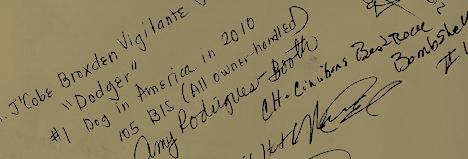 J'Cobe Broxden Vigilante
"Dodger"
#1 Dog in America in 2010
105 BIS (All owner-handled)
Amy Rodrigues-Booth
CH. Cinnibons Best Rock
Bombshell